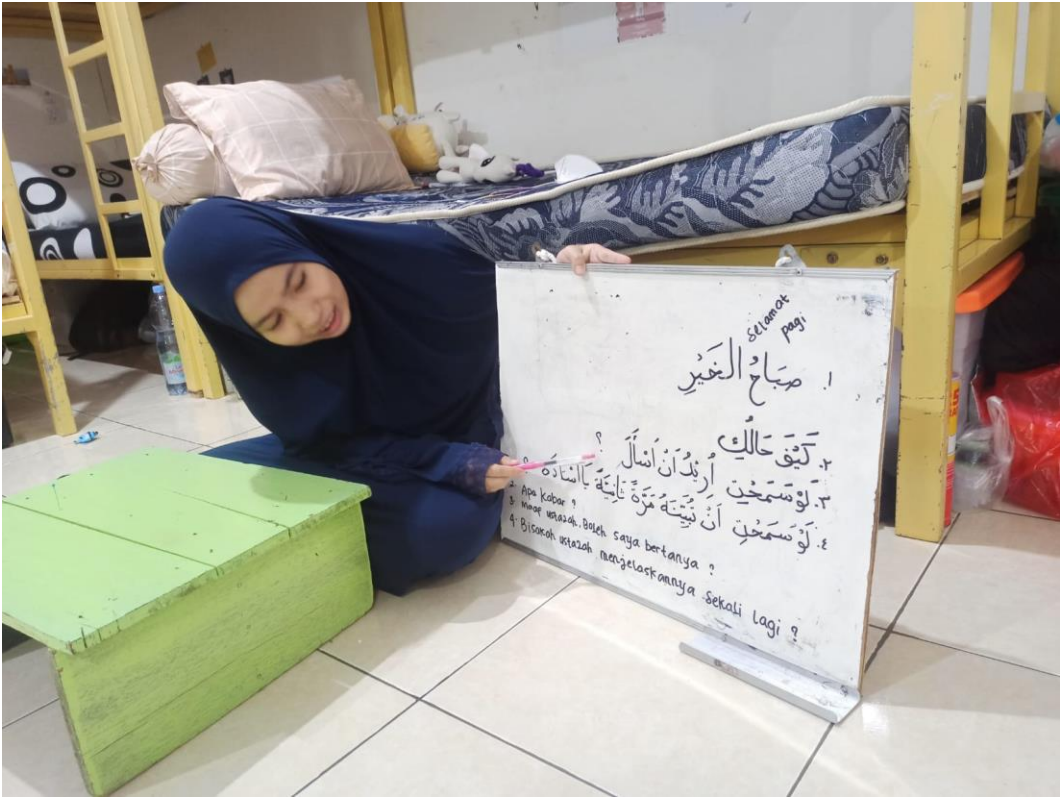 selamat
pagi
١. صَبَاحُ الْخَيْرِ
٢. كَيْفَ حَالُكِ ؟
٣. لَوْ سَمَحْتِ أُرِيْدُ اَنْ اَسْأَلَ ؟
٤. لَوْ سَمَحْتِ اَنْ تُبَيِّنَهُ مَرَّةً ثَانِيَةً يَا اُسْتَاذَة ؟
2. Apa kabar ?
3. Maap ustazah. Boleh saya bertanya ?
4. Bisakah ustazah menjelaskannya sekali lagi ?